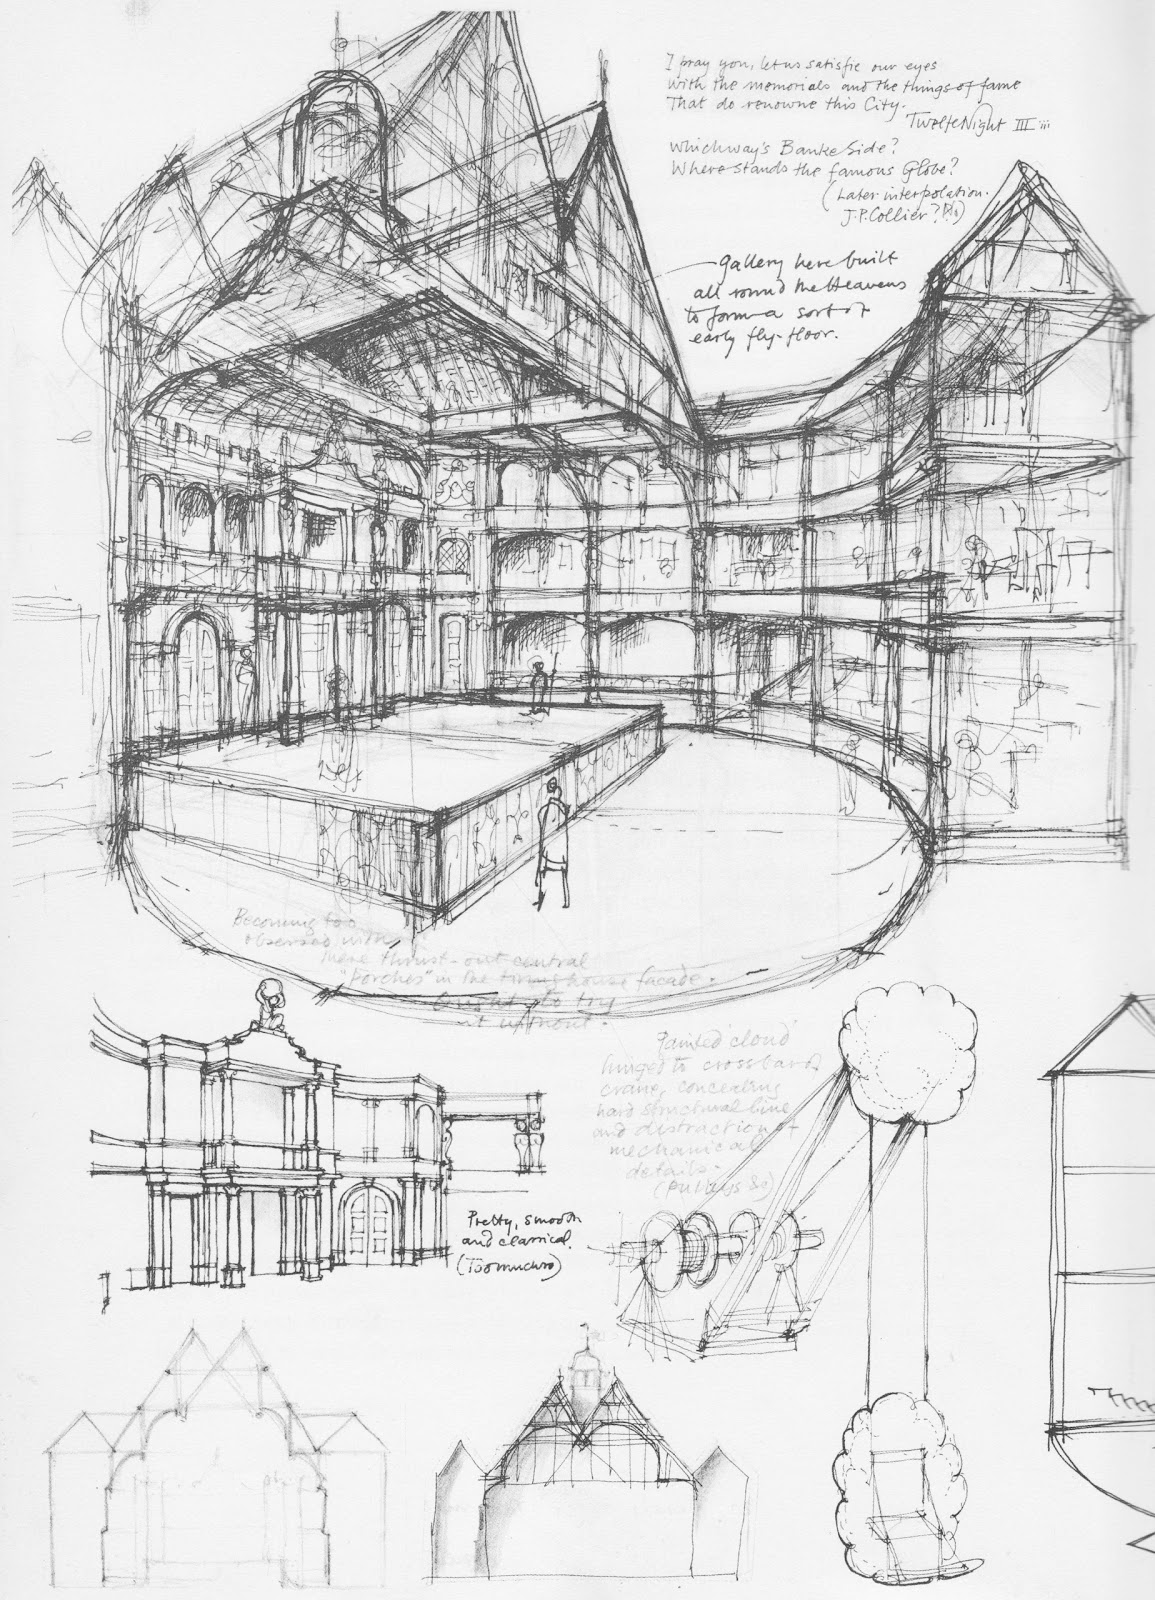 I pray you, let us satisfie our eyes
with the memorials and the things of fame
That do renowne this City.
Twelfe Night III iii
which way's Banke Side?
Where stands the famous Globe?
(Later interpolation.
J.P. Collier?
gallery here built
all round the Heavens
to form a sort of
early fly-floor.
Becoming too
obsessed with
these thrust-out central
"Porches" in the tiring house facade.
Ought to try
it upfront.
Painted 'cloud'
hinged to crossbar of
crane, concealing
hard structural line
and distraction of
mechanical
details.
(Pulleys &c)
Pretty, smooth
and classical.
(Too much so)